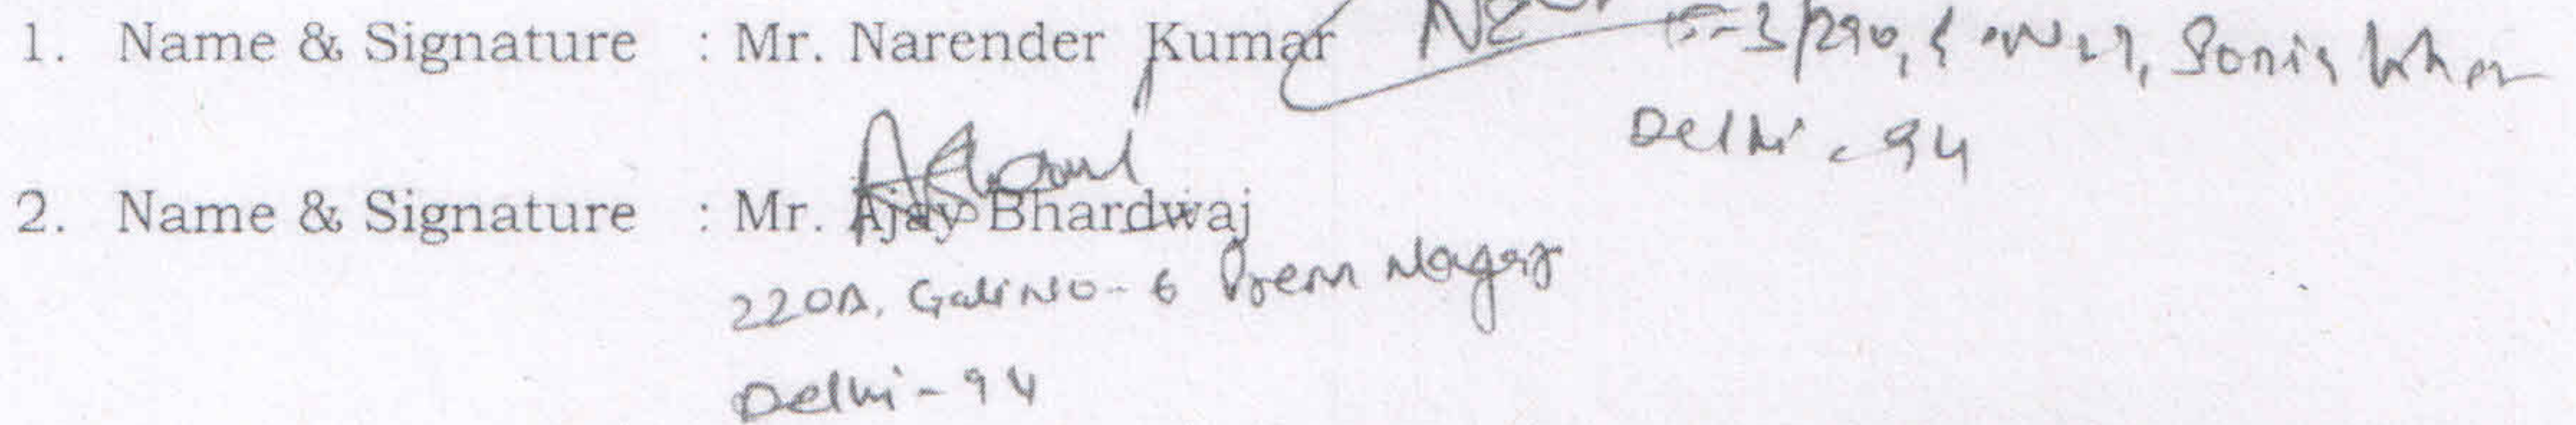 1. Name & Signature : Mr. Narender Kumar
Delhi - 94
2. Name & Signature : Mr. Ajay Bhardwaj
220A, Gali No - 6 Prem Nagar
Delhi - 94